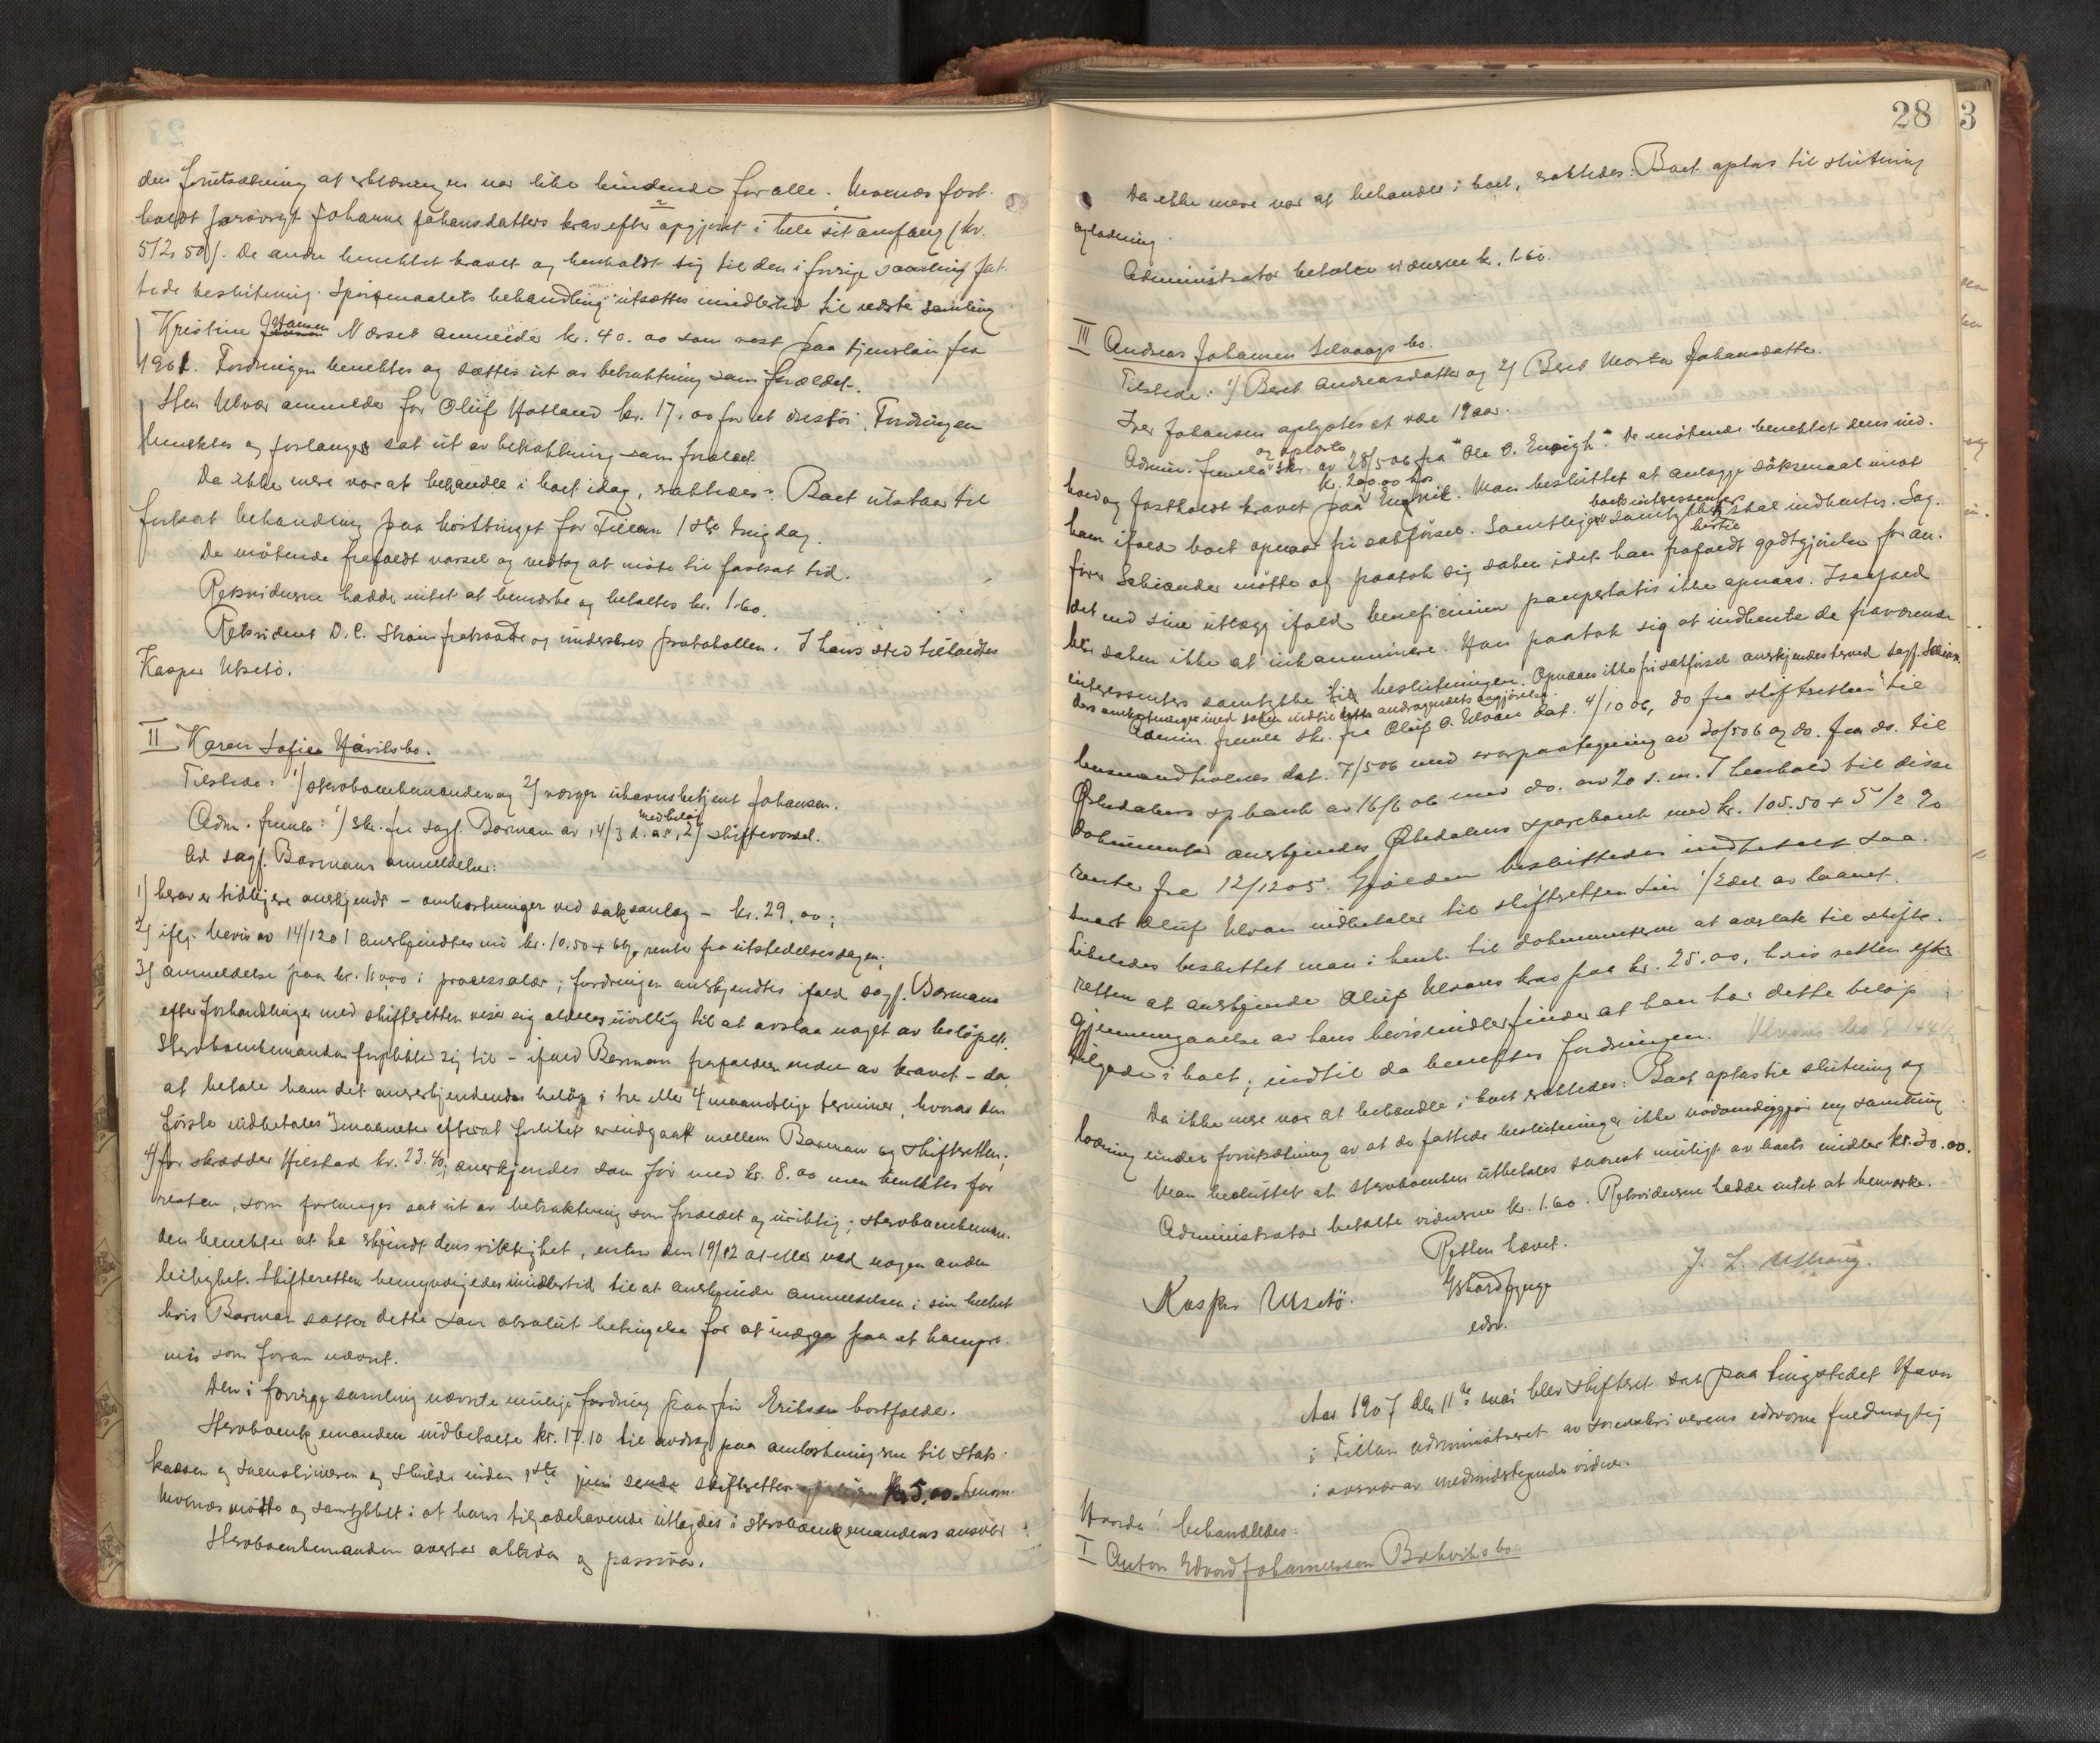 den forutsætning at erklæringen var like bindende for alle. Ulvenes fast-
holdt forøvrigt Johanne Johansdatters krav efter opgjøret i hele sit omfang (kr.
512.50). De andre benektet kravet og henholdt sig til den i forrige samling fat-
tede beslutning. Spørsmaalets behandling utsættes imidlertid til næste samling.
Kristine Hansen Næsset anmelder kr. 40.00 som rest paa tjenstløn fra
1901. Fordringen benektes og sættes ut av betraktning som forældet.
Sten Ulvær anmelder for Oluf Hatland kr. 17.00 for et Fordringen
benektes og forlanges sat ut av betraktning som forældet.
Da ikke mere var at behandle i boet idag, sattledes: Boet utstaar til
fortsat behandling paa hösttinget for Fillan 1ste tingdag.
De mötende frafaldt varsel og vedtog at möte til fastsat tid.
Retsvidnerne hadde intet at bemerke og betaltes kr. 1.60.
Retsvidnet D. C. Ström fratraadte og underskrev protokollen. I hans sted tilkaldtes
Kasper Utsetö.
II Karen Sofie Håviks bo.
Tilstede: 1) Stervboenkemanden og 2) vergen havnebetjent Johansen.
Adm. fremla: 1) Skr. fra sagf. Bosmann av 14/3 d. a. med bilag, 2) skiftevarsel.
Ad sagf. Bosmanns anmeldelse:
1) krav er tidligere anerkjendt - omkostninger ved saksanlæg - kr. 29.00;
2) iflg. bevis av 14/12 01 anerkjendtes nu kr. 10.50 + 6% rente fra utstedelsesdagen;
3) anmeldelse paa kr. 11.00 i processalær; fordringen anerkjendtes ifald sagf. Bosmann
efter forhandlinger med skifteretten viser sig aldeles uvillig til at avslaa noget av belöpet.
Stervboenkemanden forpliktet sig til - ifald Bosmann frafalder endel av kravet - da
at betale ham det anerkjendendes belöp i tre eller 4 maanedlige terminer, hvorav den
første indbetales 3 maaneder efterat forliket er indgaat mellem Bosmann og skifteretten;
4) for skrædder Hilstad kr. 23.40; anerkjendes som før med kr. 8.00 men benektes for
resten, som forlanges sat ut av betraktning som forældet og uriktig; stervboenkeman-
den benekter at ha erkjendt dens riktighet, enten den 19/12 01 eller ved nogen anden
leilighet. Skifteretten bemyndigedes imidlertid til at anerkjende anmeldelsen i sin helhet
hvis Bosmann sætter dette som absolut betingelse for at indgaa paa et kompro-
mis som foran nævnt.
Den i forrige samling nævnte mulige fordring paa fru Eriksen bortfalder.
Stervboenkemanden indbetalte kr. 17.10 til avdrag paa omkostningerne til stats-
kassen og sorenskriveren og skulde inden 1ste juni sende skifteretten kr. 5.00. Lensm.
Ulvenes mötte og samtykket i at hans tilgodehavende utlægdes i stervboenkemandens ansvar.
Stervboenkemanden overtar aktiva og passiva.
28
3
Da ikke mere var at behandle i boet, sattledes: Boet optas til slutning
og lodning.
Administrator betalte vidnerne kr. 1.60.
III Andreas Johansen Selvaags bo.
Tilstede: 1) Berit Andreasdatter og 2) Berit Marta Johansdatter.
Iver Johansen oplystes at være 19 aar.
Admin. fremla og oplæste skr. av 28/5 06 fra "Ole O. Ervigh". De mötende benektet dens ind-
hold og fastholdt kravet paa kr. 200.00 hos Man besluttet at anlægge söksmaal imot
ham ifald boet opnaar fri sakförsel. Samtlige boets interessenters samtykke hertil skal indhentes. Sag-
förer Schiander mötte og paatok sig saken idet han frafaldt godtgjörelse for an-
det end sine utlæg ifald beneficium paupertatis ikke opnaas. Isaafald
blir saken ikke at inkamminere. Han paatok sig at indhente de fraværende
interessenters samtykke til beslutningen. Opnaaes ikke fri sakförsel anerkjendes herved sagf. Schian-
ders omkostninger med saken indtil dette andragendets avgjörelse.
Admin. fremla skr. fra Oluf O. Ulvaan dat. 4/10 06, do fra skifteretten til
lensmand Ulvenes dat. 7/5 06 med svarpaategning av 30/5 06 og do. fra ds. til
Örkedalens spbank av 16/6 06 med do. av 20 s. m. I henhold til disse
dokumenter anerkjendes Örkedalens sparebank med kr. 105.50 + 5 1/2 %
rente fra 12/12 05. Gjælden besluttedes indbetalt saa-
snart Oluf Ulvan indbetaler til skifteretten sin 1/2 del av laanet.
Likeledes besluttet man i henh. til dokumenterne at overlate til skifte-
retten at anerkjende Oluf Ulvans krav paa kr. 25.00, hvis retten efter
gjennemgaaelse av hans bevismidler finder at han har dette belöp
tilgode i boet; indtil da benektes fordringen.
Da ikke mere var at behandle i boet sattledes: Boet optas til slutning og
lodning under forutsætning av at de fattede beslutninger ikke nödvendiggjör ny samling.
Man besluttet at stervboenken utbetales snarest muligt av boets midler kr. 30.00.
Administrator betalte vidnerne kr. 1.60. Retsvidnerne hadde intet at bemerke.
Retten hævet.
Kasper Utsetö.
edsv.
Aar 1907 den 11te mai blev skifteret sat paa tingstedet Havn
i Fillan administreret av sorenskriverens edsvorne fuldmægtig
i overvær av medundertegnede vidner.
Hvorda! behandledes:
I Anton Edvard Johannessen Bekviks bo